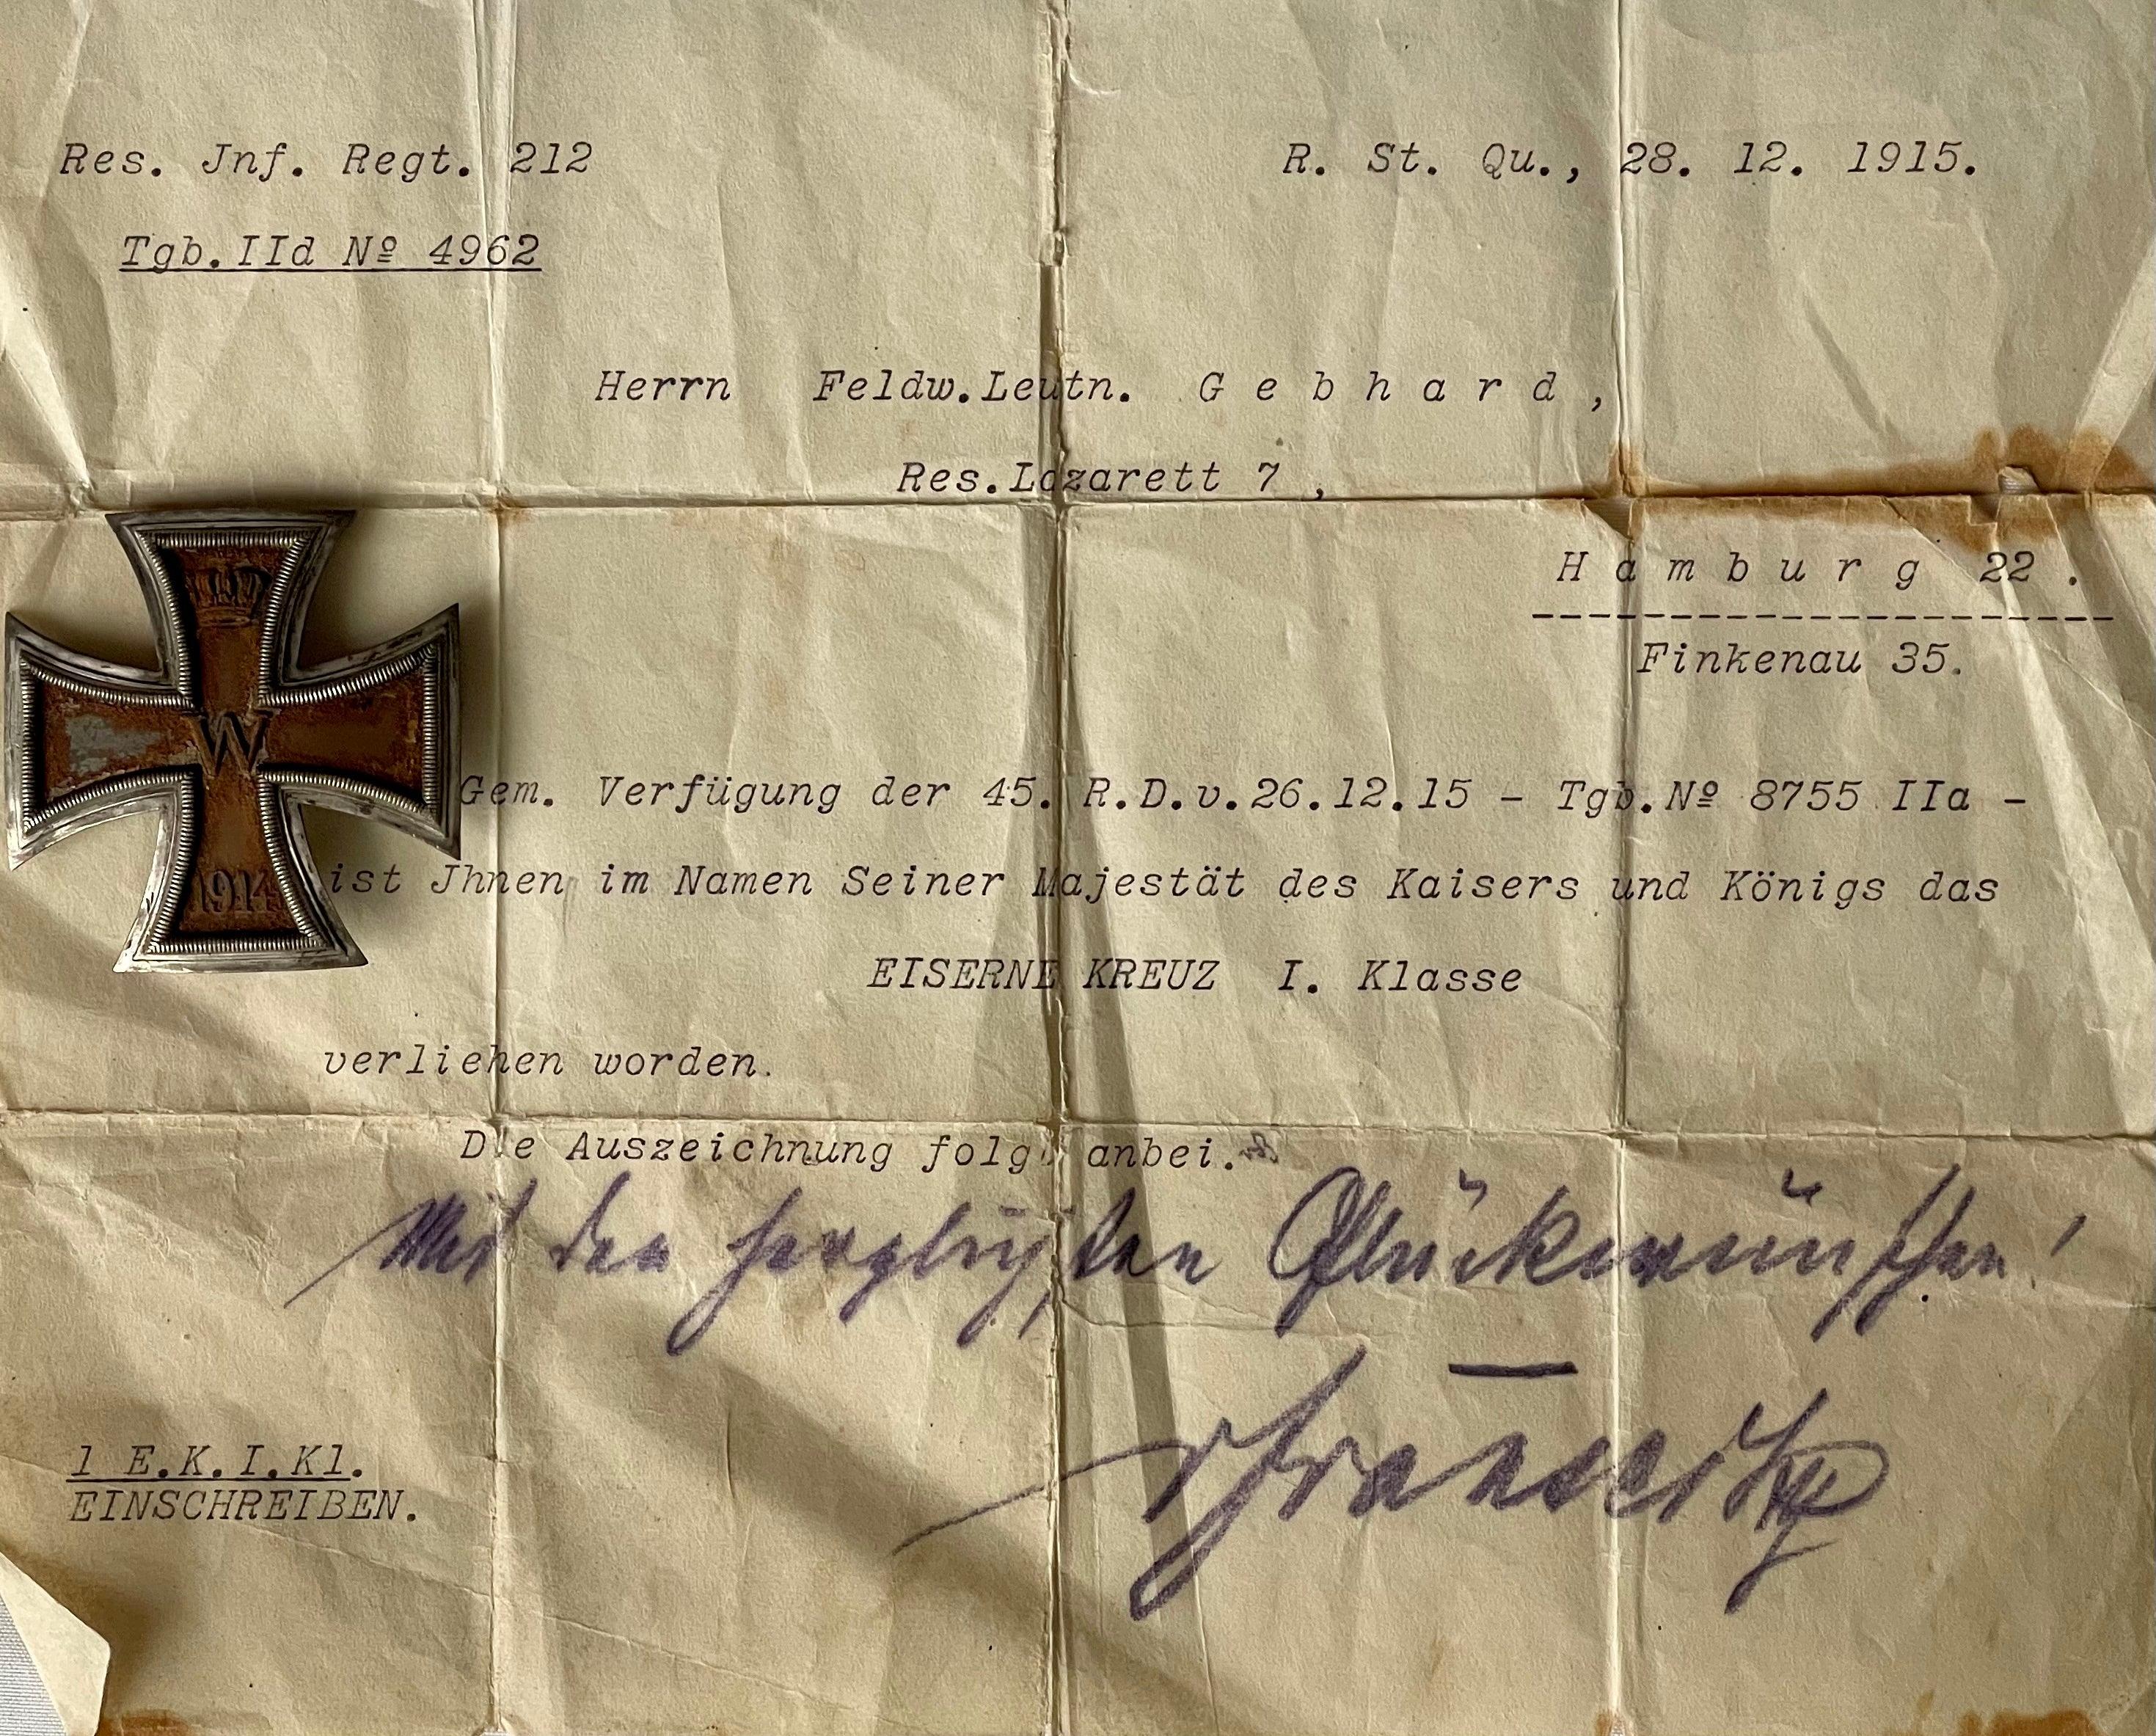 Res. Jnf. Regt. 212
R. St. Qu., 28. 12. 1915.
Tgb.IId Nº 4962
Herrn Feldw.Leutn. Gebhard,
Res.Lazarett 7 ,
Hamburg 22 .
Finkenau 35.
W
1914
Gem. Verfügung der 45. R.D.v.26.12.15 - Tgb.Nº 8755 IIa -
ist Jhnen im Namen Seiner Majestät des Kaisers und Königs das
EISERNE KREUZ I. Klasse
verliehen worden.
Die Auszeichnung folgt anbei.
Mit den herzlichsten Glückwünschen!
1 E.K.I.Kl.
EINSCHREIBEN.